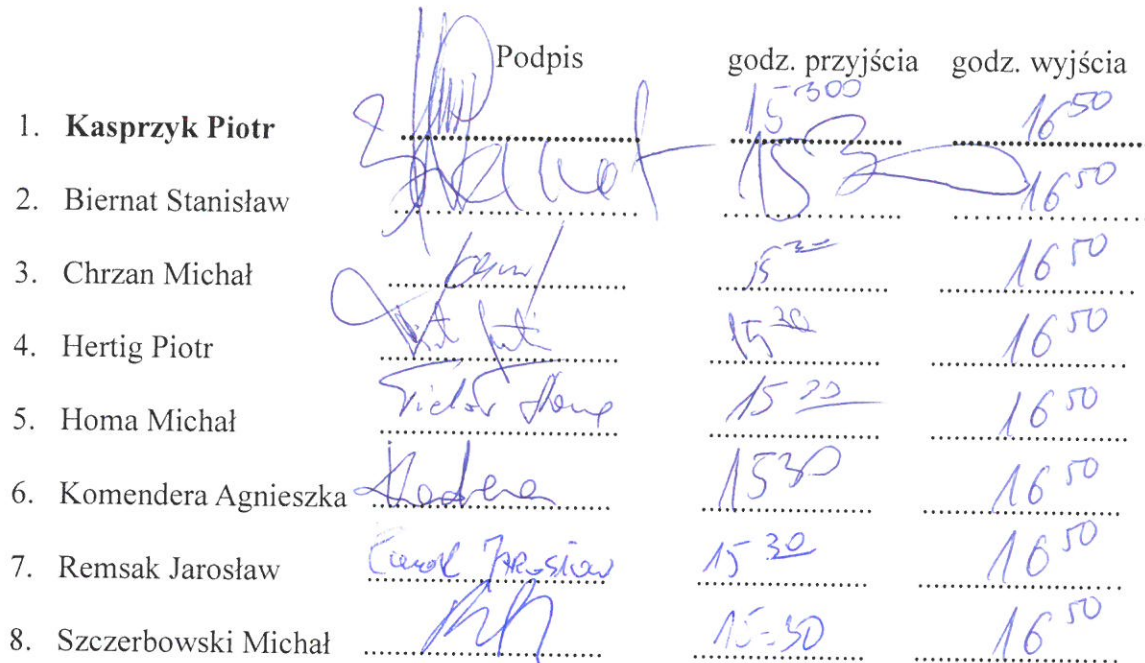 Podpis godz. przyjścia godz. wyjścia
1. Kasprzyk Piotr 16 50
2. Biernat Stanisław Biernat 15 3 16 50
3. Chrzan Michał 15 30 16 50
4. Hertig Piotr 15 30 16 50
5. Homa Michał 15 30 16 50
6. Komendera Agnieszka 15 30 16 50
7. Remsak Jarosław Jarosław 15 30 16 50
8. Szczerbowski Michał 15-30 16 50